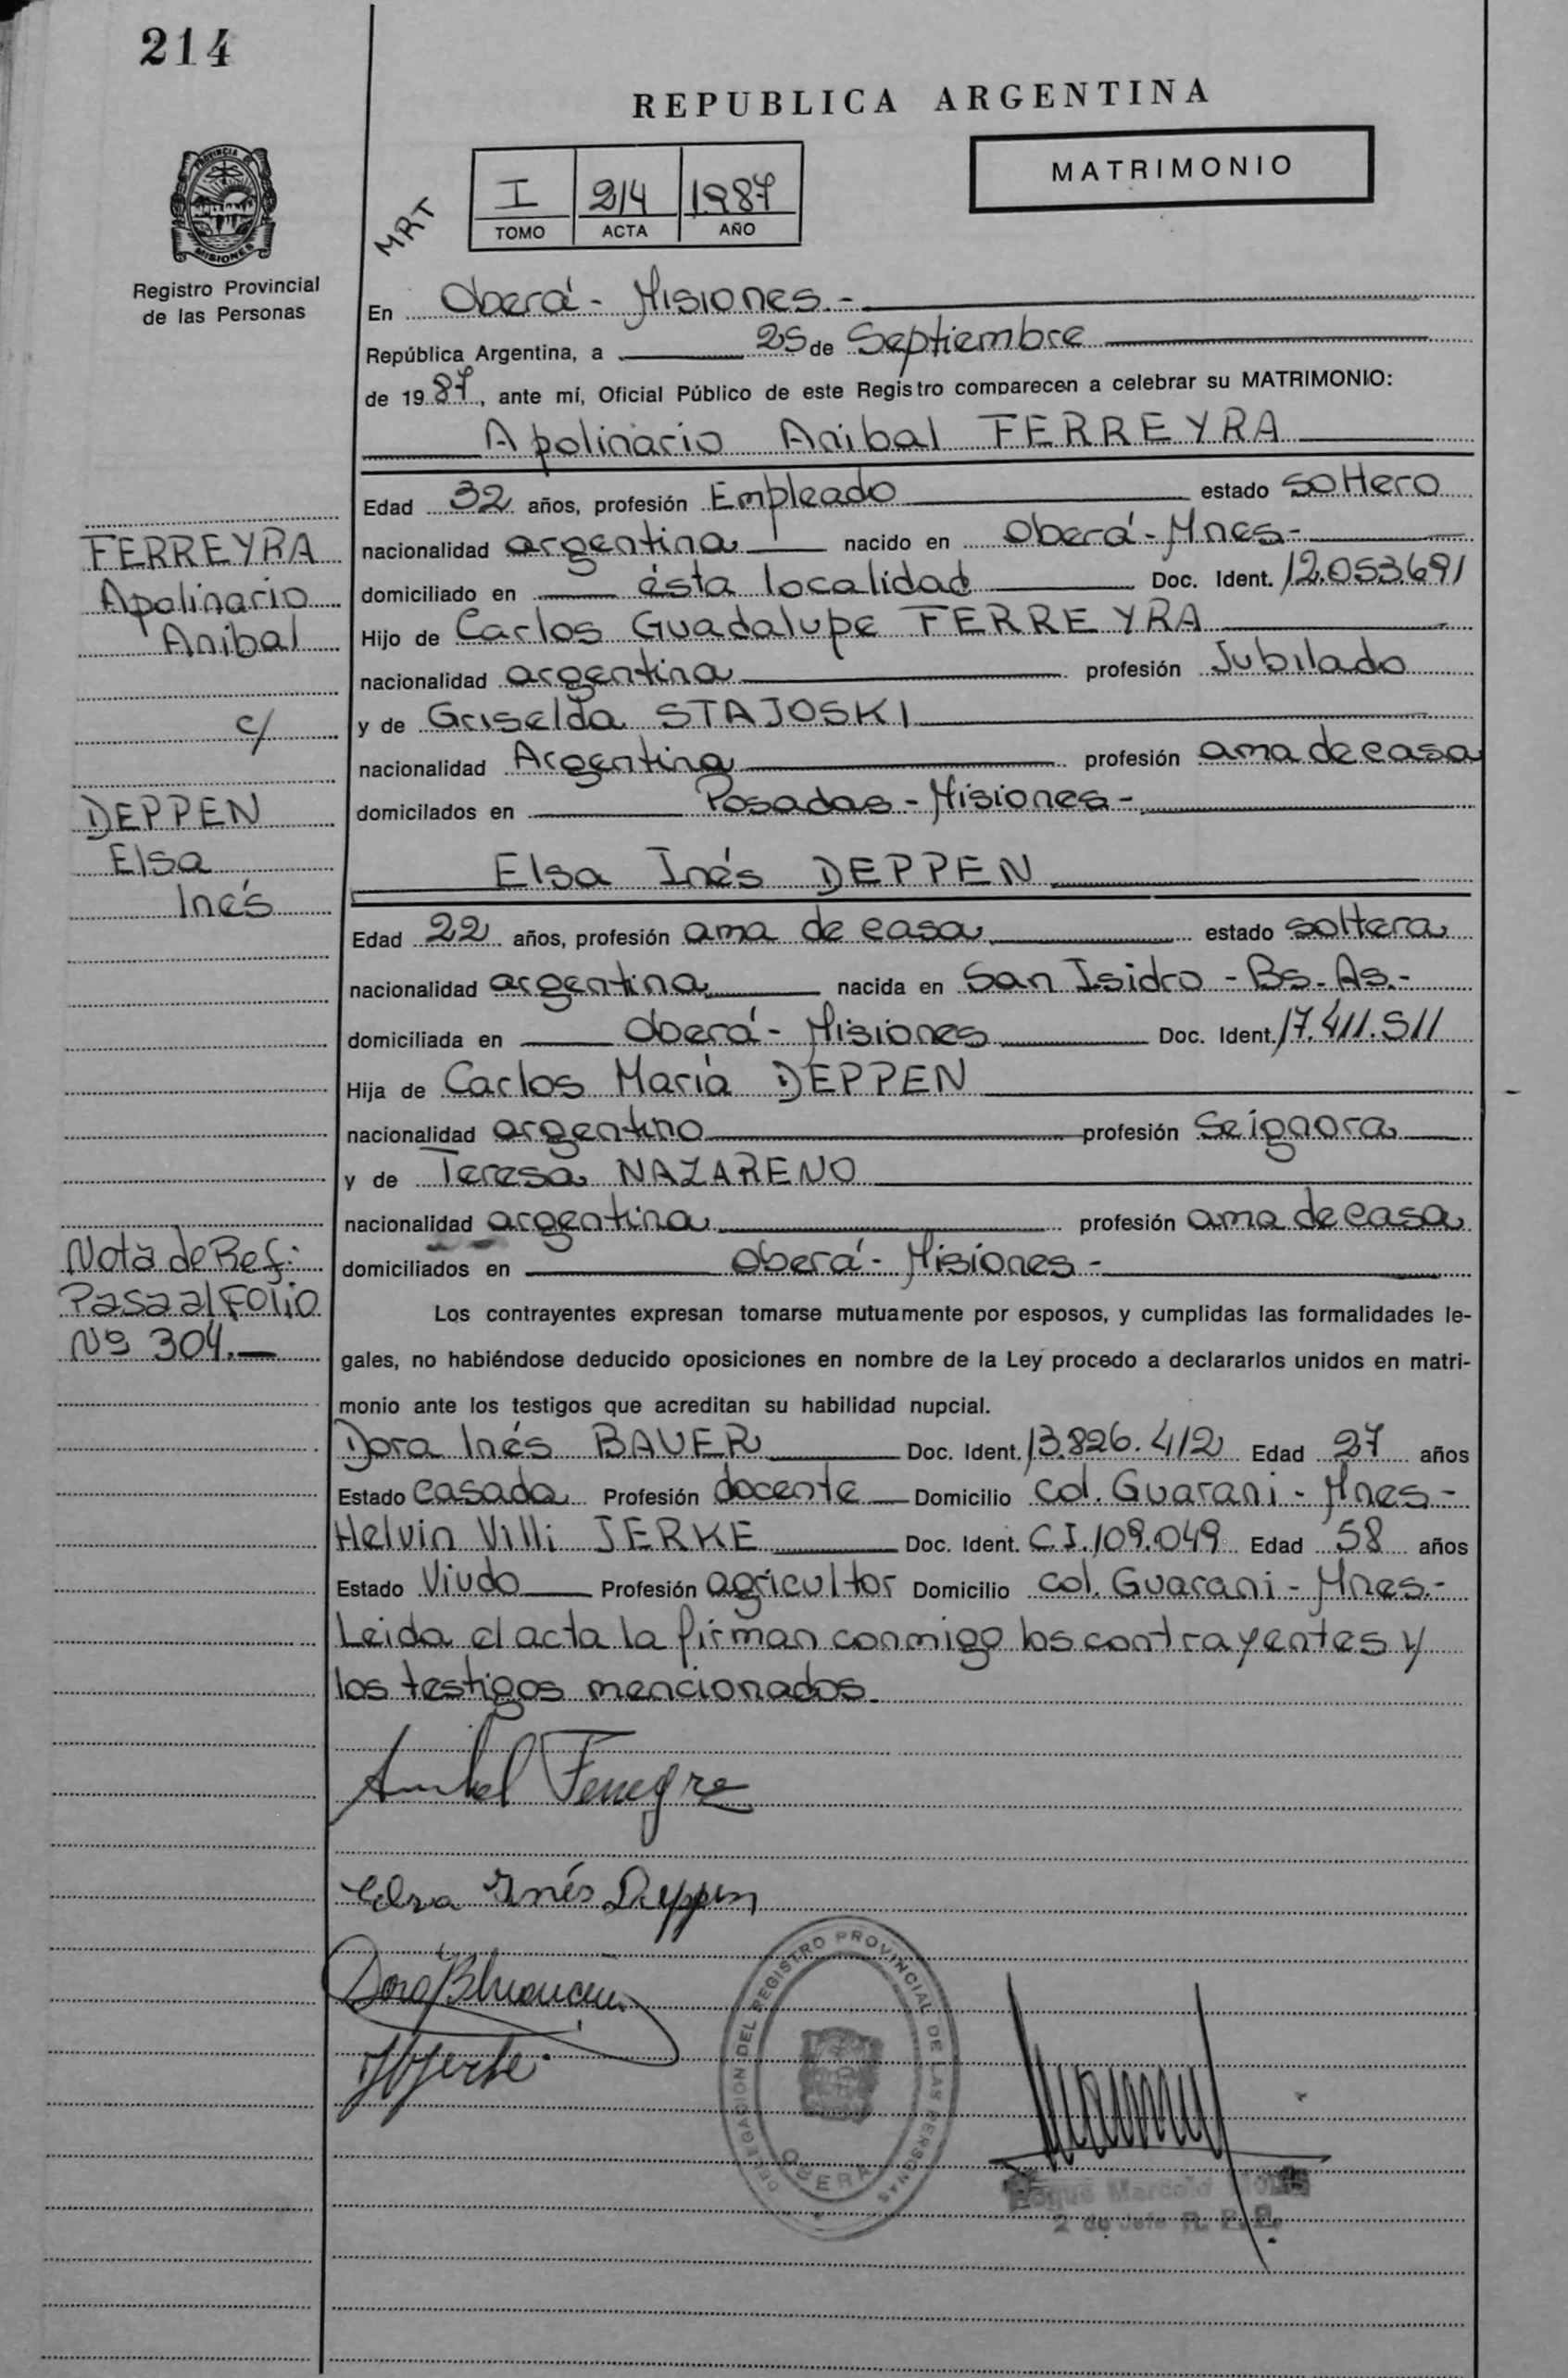 214
REPUBLICA ARGENTINA
MATRIMONIO
MRT
I 214 1987
TOMO ACTA AÑO
PROVINCIA DE
MISIONES
Registro Provincial
de las Personas
En Oberá - Misiones.-
República Argentina, a 25 de Septiembre
de 1987, ante mí, Oficial Público de este Registro comparecen a celebrar su MATRIMONIO:
Apolinario Anibal FERREYRA
Edad 32 años, profesión Empleado estado soltero
nacionalidad argentina nacido en Oberá - Mnes-
domiciliado en ésta localidad Doc. Ident. 12.053.691
Hijo de Carlos Guadalupe FERREYRA
nacionalidad argentina profesión Jubilado
y de Griselda STAJOSKI
nacionalidad Argentina profesión ama de casa
domicilados en Posadas - Misiones -
Elsa Inés DEPPEN
Edad 22 años, profesión ama de casa estado soltera
nacionalidad argentina nacida en San Isidro - Bs. As.-
domiciliada en Oberá - Misiones Doc. Ident. 17.411.511
Hija de Carlos María DEPPEN
nacionalidad argentino profesión Se ignora
y de Teresa NAZARENO
nacionalidad argentina profesión ama de casa
domiciliados en Oberá - Misiones -
Los contrayentes expresan tomarse mutuamente por esposos, y cumplidas las formalidades le-
gales, no habiéndose deducido oposiciones en nombre de la Ley procedo a declararlos unidos en matri-
monio ante los testigos que acreditan su habilidad nupcial.
Dora Inés BAUER Doc. Ident. 13.826.412 Edad 27 años
Estado casada Profesión docente Domicilio col. Guarani - Mnes-
Helvin Villi JERKE Doc. Ident. C.I. 109.049 Edad 58 años
Estado Viudo Profesión agricultor Domicilio col. Guarani - Mnes.-
Leida el acta la firman conmigo los contrayentes y
los testigos mencionados.
FERREYRA
Apolinario
Anibal
c/
DEPPEN
Elsa
Inés
Nota de Ref:
Pasa al Folio
Nº 304.-
Anibal Ferreyra
Elsa Inés Deppen
DELEGACION DEL REGISTRO PROVINCIAL DE LAS PERSONAS
OBERA
Roque Marcelo
2 do Jefe R. P. P.